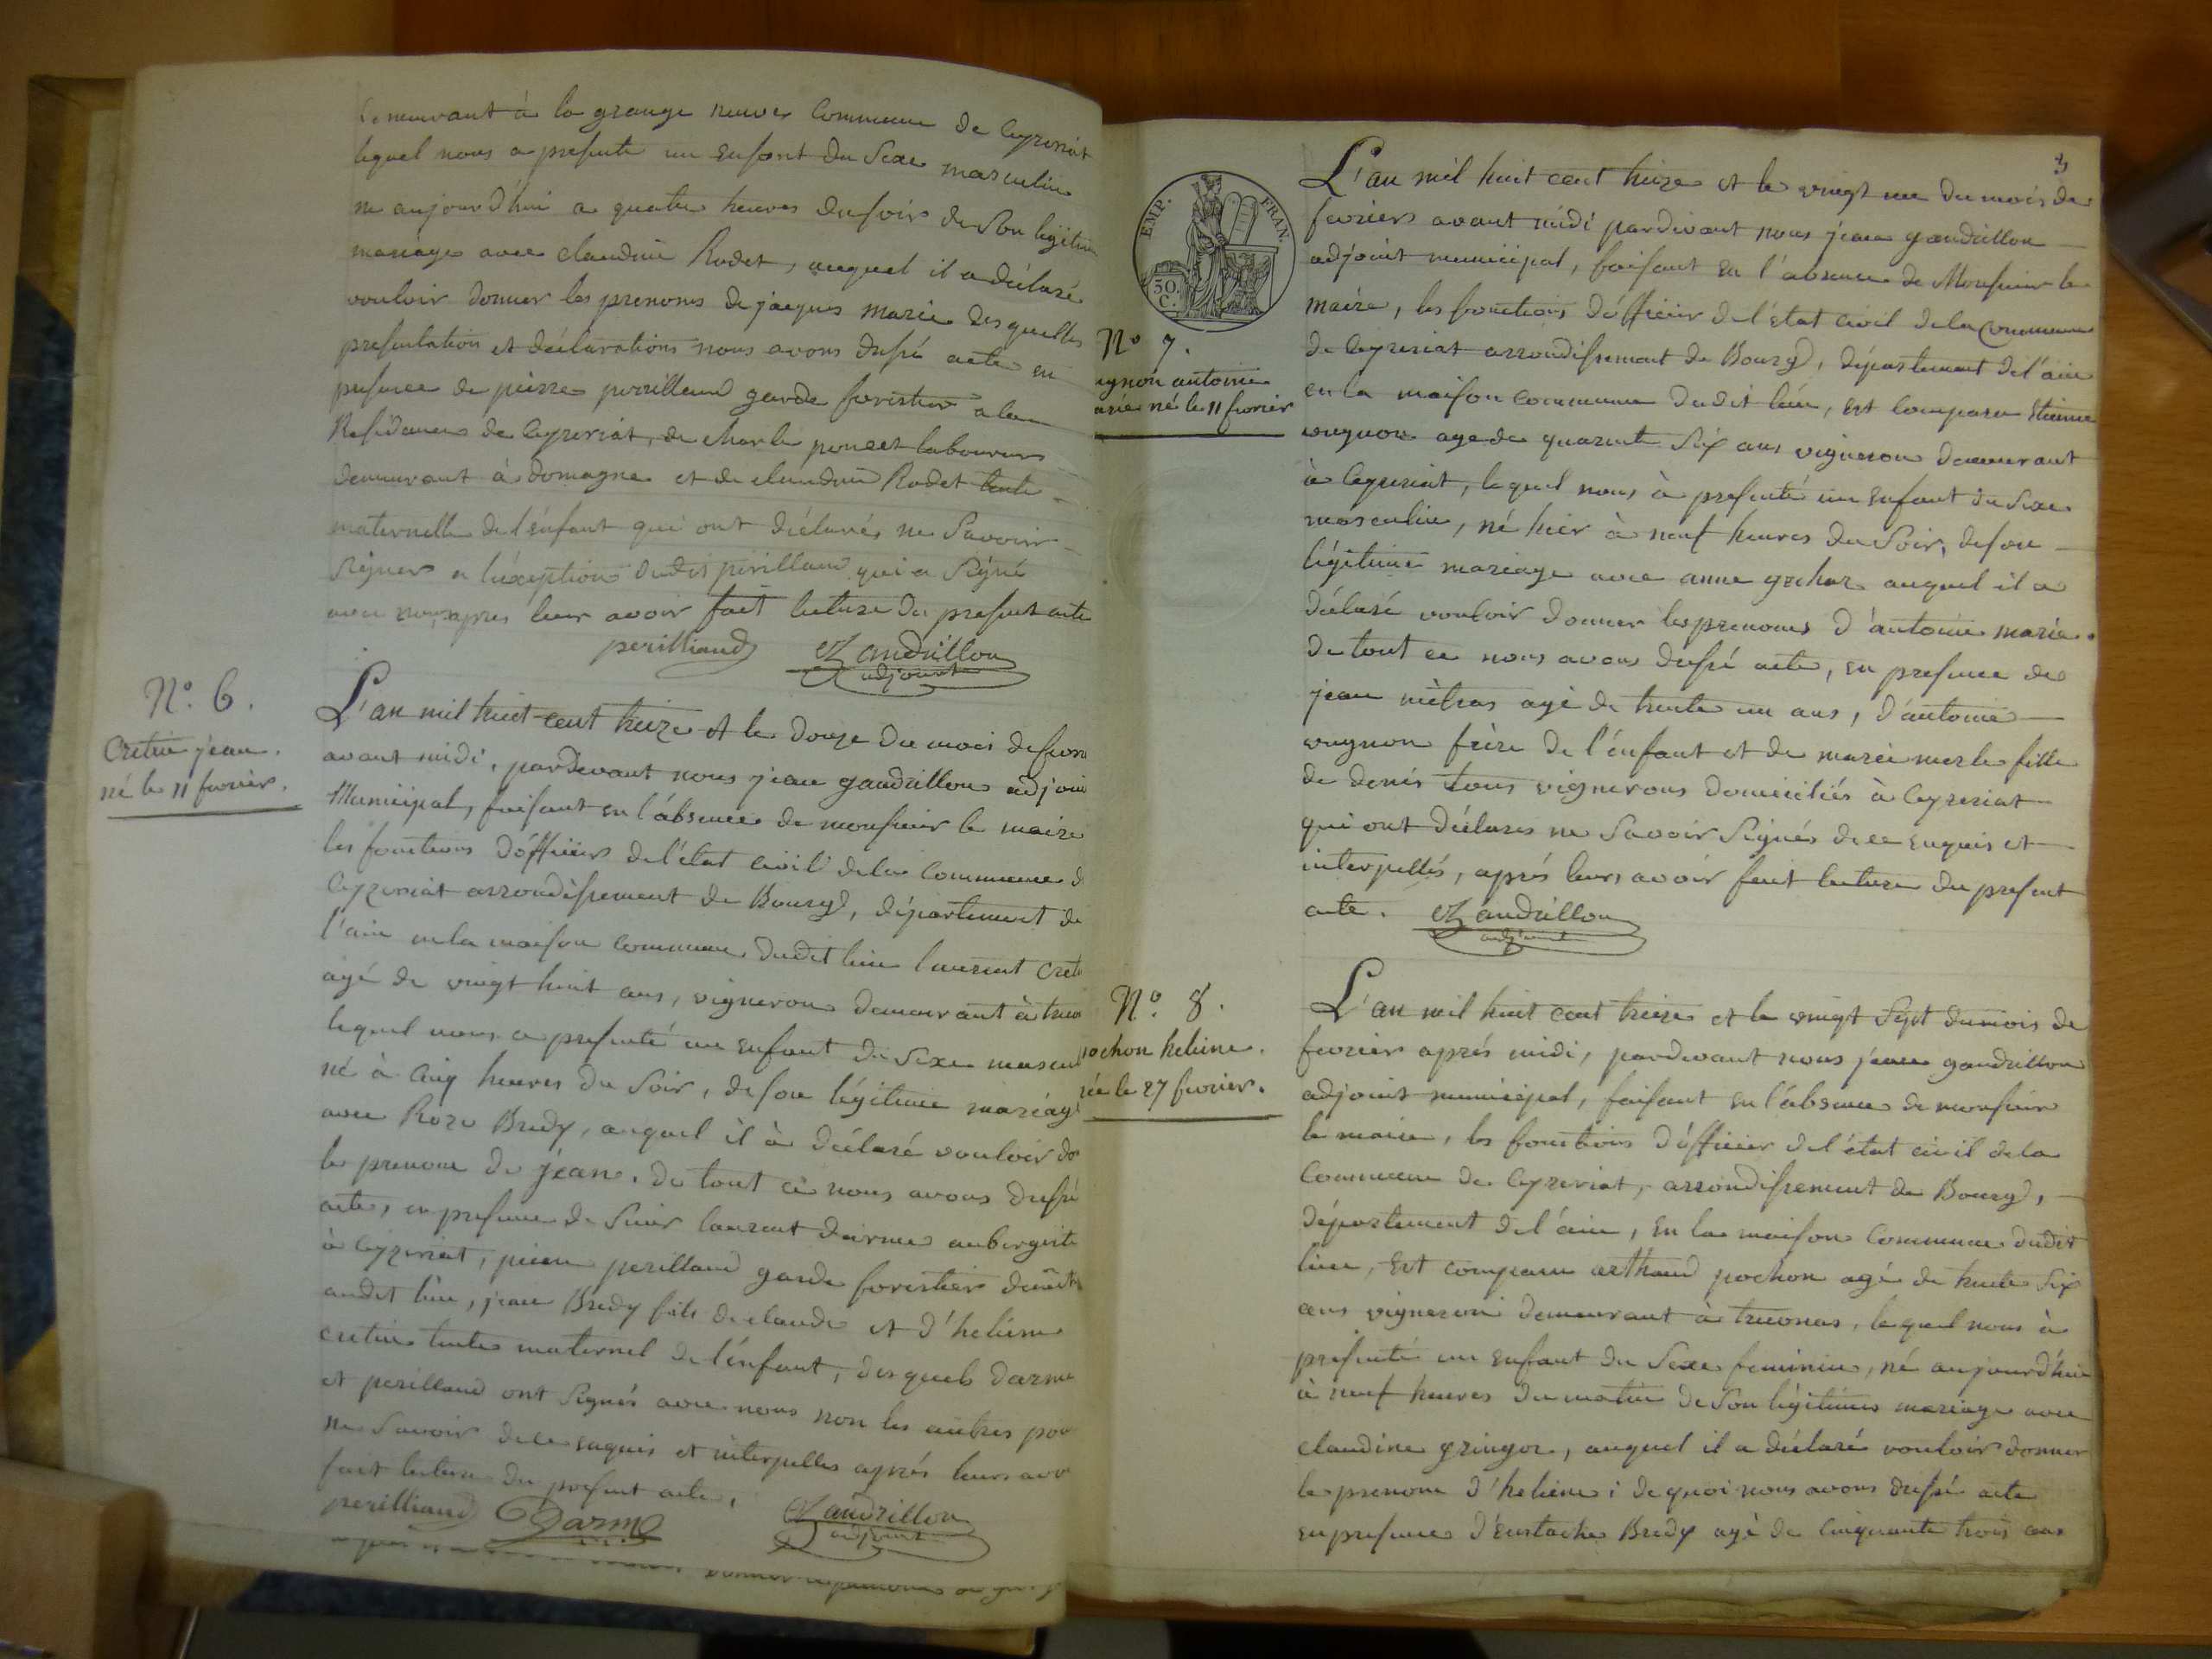 demeurant à la grange neuve Commune de Ceyzeriat
lequel nous a presenté un enfant du Sexe masculin
né aujourd'hui a quatre heures du soir de Son légitime
mariage avec claudine Rodet, auquel il a déclaré
vouloir donner les prenoms de jacques marie desquelles
presentation et déclarations nous avons dressé acte en
presence de pierre perilliand garde forestier a la
Residence de Ceyzeriat, de charle poncet laboureur
demeurant à domagne et de claudine Rodet tente
maternelle de l'enfant qui ont déclarés ne Savoir
Signer a l'éxeption dudit pirilland qui a Signé
avec nous apres leur avoir fait lecture du present acte
perilliand Gandrillon
adjoint
N.° 6.
Cretin jean.
né le 11 fevrier.
L'an mil huit cent treize et le douze du mois de fevr
avant midi, pardevant nous jean gandrillon adjoin
Municipal, faisant en l'absence de monsieur le maire
les fonctions d'officier de l'état civil de la Commune d
Ceyzeriat arrondissement de Bourg, département de
l'ain en la maison commune dudit lieu laurent Creti
agé de vingt huit ans, vigneron demeurant à trec
lequel nous a presenté un enfant du Sexe mascul
né à cinq heures du Soir, de son légitime mariag
avec Roze Bredy, auquel il à déclaré vouloir do
le prenom de jean. de tout ce nous avons dressé
acte, en presence de Sieur laurent darme aubergiste
à Ceyzeriat, pierre perilland garde forestier
audit lieu, jean Bredy fils de claude et d'heliene
cretin tente maternel de l'énfant, desquels darme
et perilland ont Signés avec nous non les autres pou
ne Savoir de ce enquis et interpellés aprés leurs avo
fait lecture du present acte.
perilliand Darme Gandrillon
adjoint
3
EMP. FRAN.
50. C.
N° 7.
ugnon antoine
arie né le 11 fevrier
L'an mil huit cent treize et le vingt un du mois de
fevrier avant midi pardevant nous jean gandrillon
adjoint municipal, faisant en l'absence de Monsieur le
maire, les fonctions d'officier de l'état civil de la Commune
de Ceyzeriat arrondissement de Bourg, département de l'ain
en la maison commune dudit lieu, est comparu Etienne
vugnon age de quarente Six ans vigneron demeurant
à Ceyzeriat, lequel nous à presenté un enfant du Sexe
masculin, né hier à neuf heures du Soir, de son
légitime mariage avec anne auquel il a
déclaré vouloir donner les prenoms d'antoine marie.
De tout ce nous avons dressé acte, en presence de
jean mètras agé de trente un ans, d'antoine
vugnon frère de l'énfant et de marie merle fille
de denis tous vignerons domiciliés à Ceyzeriat
qui ont déclarés ne Savoir Signés de ce enquis et
interpellés, aprés leurs avoir fait lecture du present
acte. Gandrillon
adjoint
N.° 8.
pochon heliene.
née le 27 fevrier.
L'an mil huit cent treize et le vingt Sept du mois de
fevrier aprés midi, pardevant nous jean gandrillon
adjoint municipal, faisant en l'absence de monsieur
le maire, les fonctions d'officier de l'état civil de la
Commune de Ceyzeriat, arrondissement de Bourg,
département de l'ain, en la maison commune dudit
lieu, est comparu arthaud pochon agé de trente Six
ans vigneron demeurant à treconas, lequel nous à
presenté un enfant du Sexe feminin, né aujourd'hui
à neuf heures du matin de Son légitimes mariage avec
claudine gringoz, auquel il a déclaré vouloir donner
le prenom d'heliene; de quoi nous avons dressé acte
en presence d'Eustache Bredy agé de Cinquante trois ans